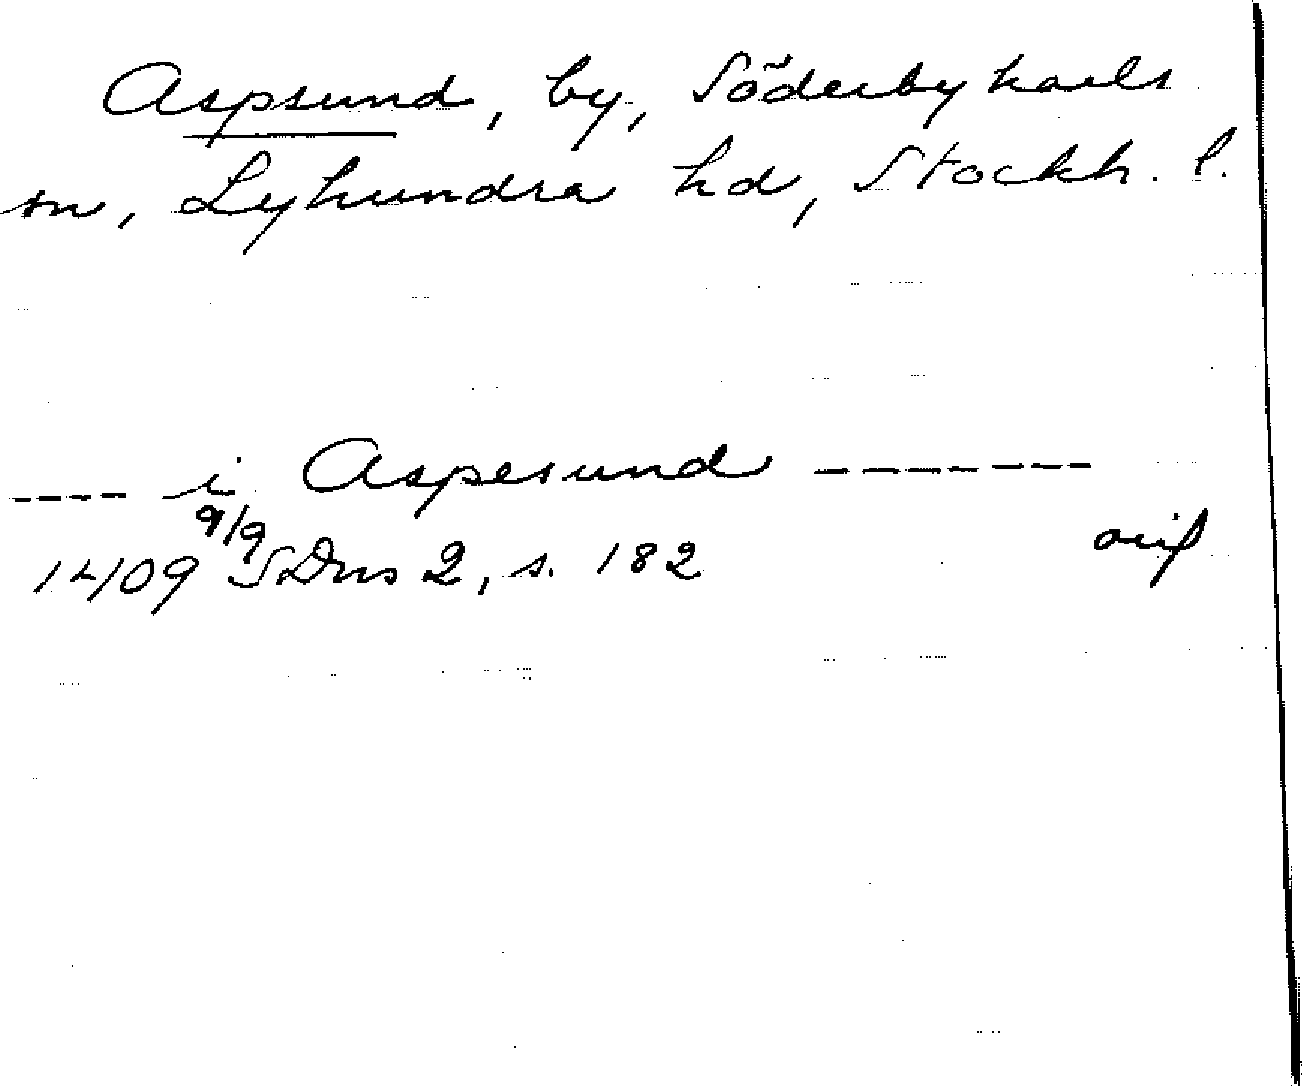 Aspsund, by, Söderbykarls
sn, Lyhundra hd, Stockh. l.
---- i Aspesund -------
1409 9/9 SDns 2, s. 182